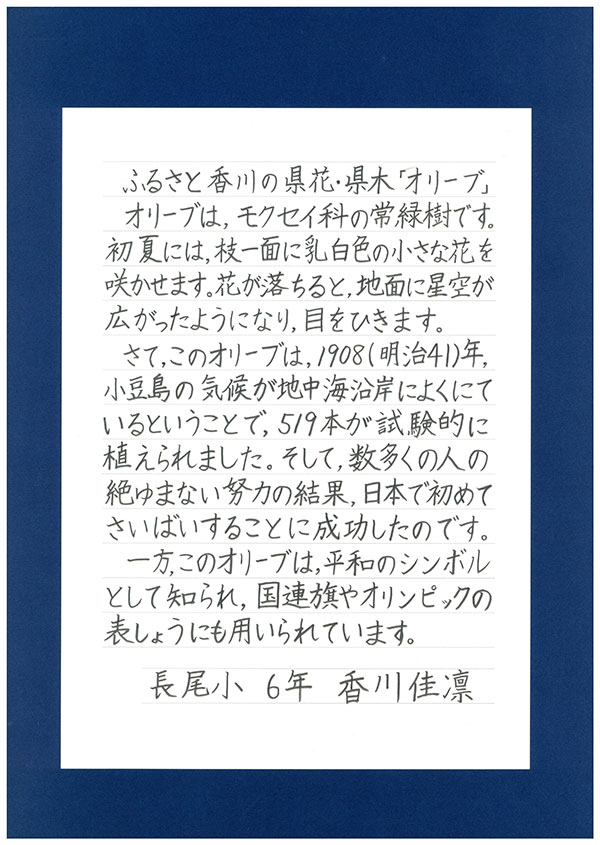 ふるさと香川の県花・県木「オリーブ」
オリーブは,モクセイ科の常緑樹です。
初夏には,枝一面に乳白色の小さな花を
咲かせます。花が落ちると,地面に星空が
広がったようになり,目をひきます。
さて,このオリーブは,1908(明治41)年,
小豆島の気候が地中海沿岸によくにて
いるということで,519本が試験的に
植えられました。そして,数多くの人の
絶ゆまない努力の結果,日本で初めて
さいばいすることに成功したのです。
一方,このオリーブは,平和のシンボル
として知られ,国連旗やオリンピックの
表しょうにも用いられています。
長尾小 6年 香川佳凛